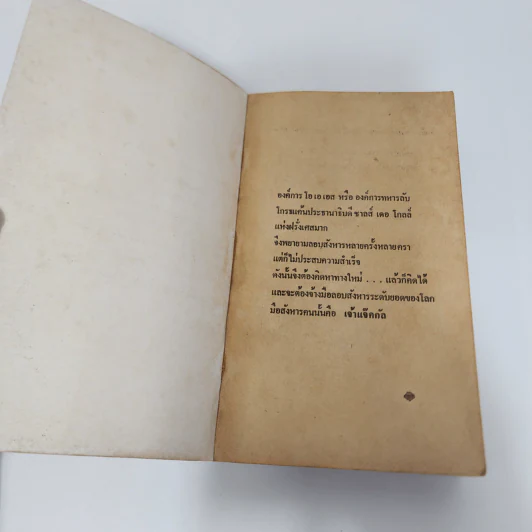 องค์การ โอ เอ เอส หรือ องค์การทหารลับ
โกรธแค้นประธานาธิบดี ชาลส์ เดอ โกลล์
แห่งฝรั่งเศสมาก
จึงพยายามลอบสังหารหลายครั้งหลายครา
แต่ก็ไม่ประสบความสำเร็จ
ดังนั้นจึงต้องคิดหาทางใหม่ . . . แล้วก็คิดได้
และจะต้องจ้างมือลอบสังหารระดับยอดของโลก
มือสังหารคนนั้นคือ เจ้าแจ๊คกัล